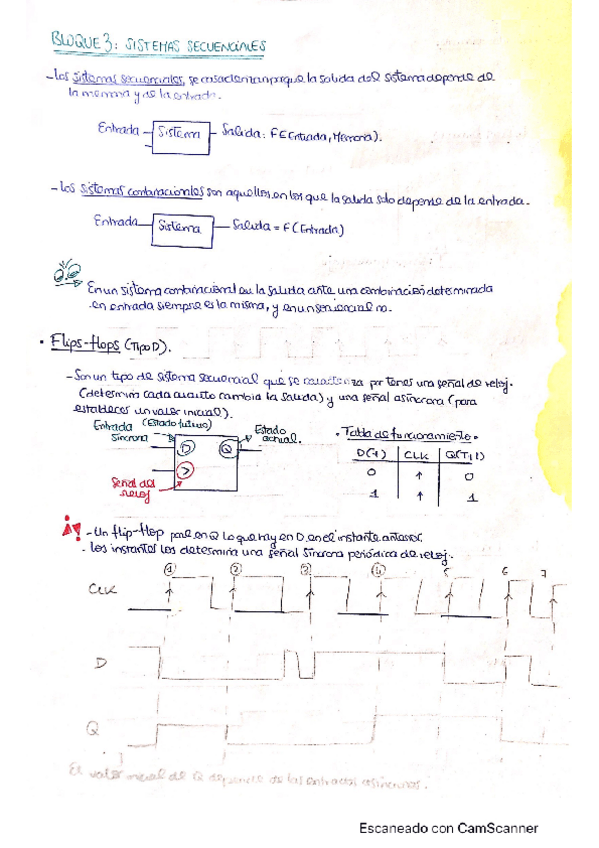 BLOQUE 3: SISTEMAS SECUENCIALES
- Los sistemas secuenciales, se caracterizan porque la salida del sistema depende de
la memoria y de la entrada.
Entrada Sistema Salida: F(Entrada, Memoria).
- Los sistemas combinacionales son aquellos en los que la salida solo depende de la entrada.
Entrada Sistema Salida = F(Entrada)
En un sistema combinacional en la salida ante una combinación determinada
en entrada siempre es la misma, y en un secuencial no.
• Flips-flops (Tipo D).
- Son un tipo de sistema secuencial que se caracteriza por tener una señal de reloj.
(determina cada cuanto cambia la salida) y una señal asíncrona (para
establecer un valor inicial).
Entrada (Estado futuro)
Síncrona
D Q
Estado
actual.
Señal del
reloj
• Tabla de funcionamiento.
D(t) CLK Q(T+1)
0 ↑ 0
1 ↑ 1
- Un flip-flop pone en Q lo que hay en D, en el instante anterior.
. Los instantes los determina una señal síncrona periódica de reloj.
1 2 3 4 5 6 7
CLK
D
Q
El valor inicial de Q depende de las entradas asíncronas.
Escaneado con CamScanner